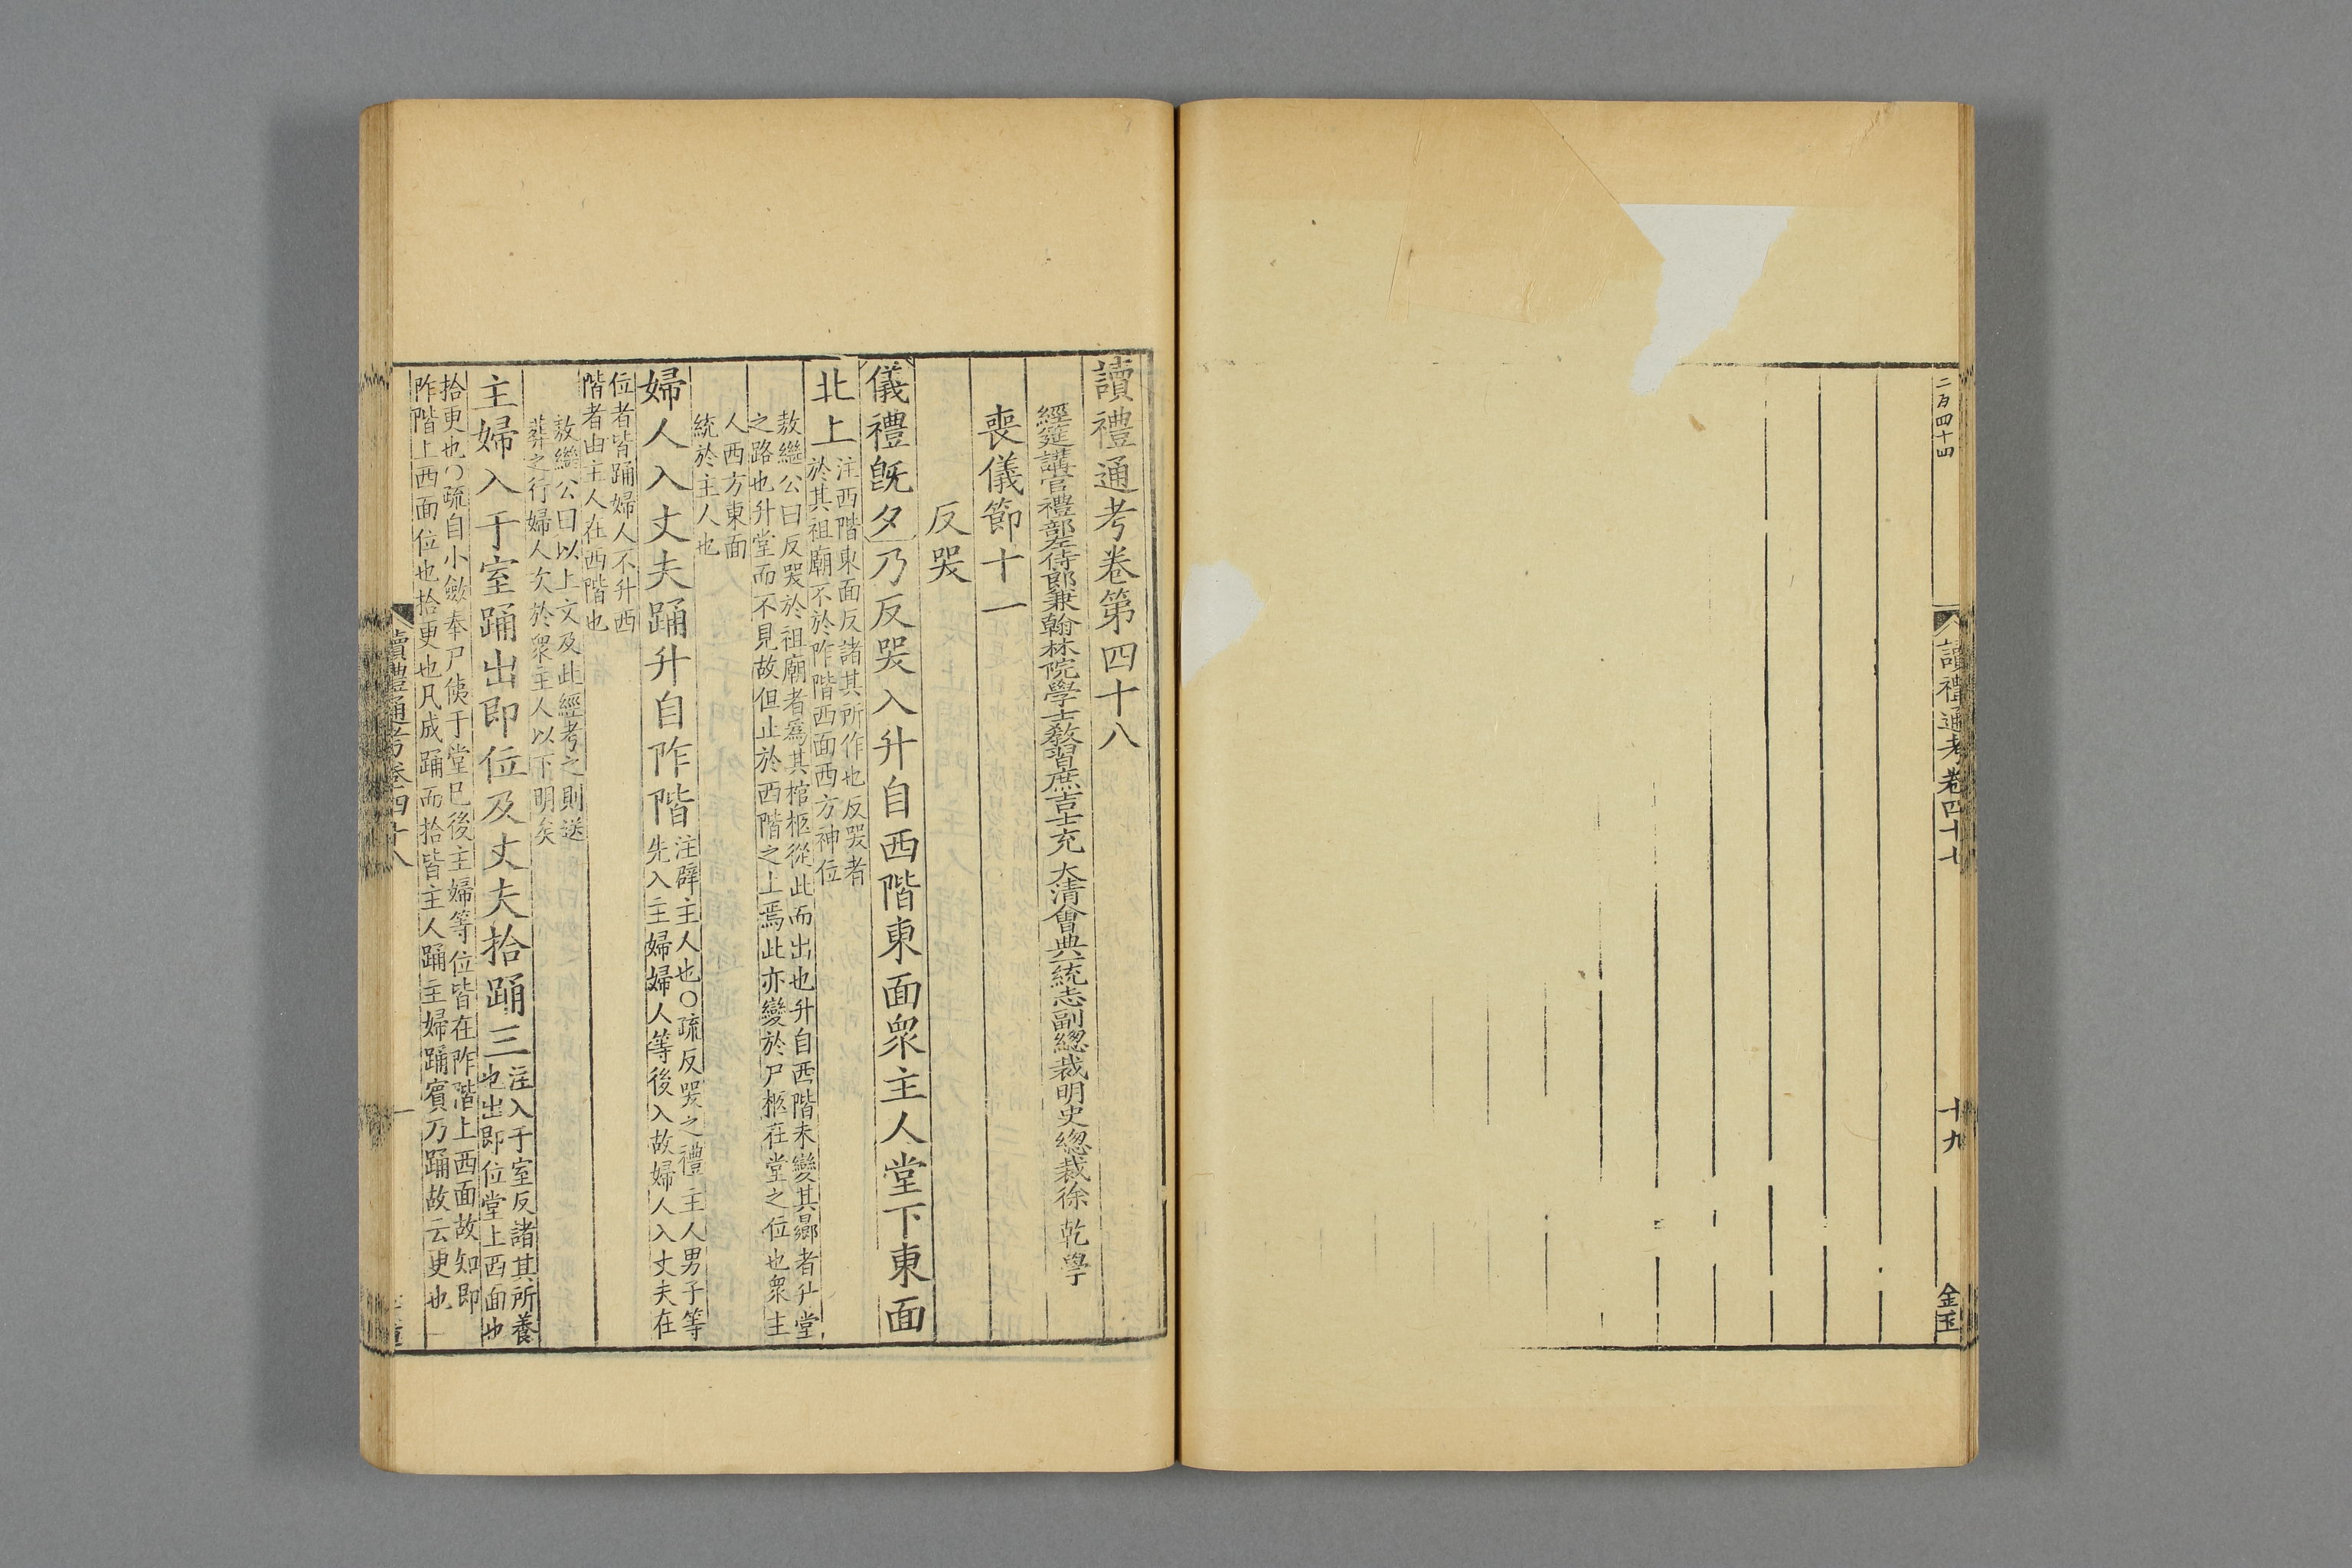 二百四十四
讀禮通考卷四十七
十九
金玉
讀禮通考卷第四十八
經筵講官禮部左侍郎兼翰林院學士教習庶吉士充 大清會典一統志副總裁明史總裁徐乾學
喪儀節十一
反哭
儀禮旣夕乃反哭入升自西階東面眾主人堂下東面
北上
注西階東面反諸其所作也反哭者
於其祖廟不於阼階西面西方神位
敖繼公曰反哭於祖廟者爲其棺柩從此而出也升自西階未變其曏者升堂
之路也升堂而不見故但止於西階之上焉此亦變於尸柩在堂之位也眾主
人西方東面
統於主人也
婦人入丈夫踊升自阼階
注辟主人也○疏反哭之禮主人男子等
先入主婦婦人等後入故婦人入丈夫在
位者皆踊婦人不升西
階者由主人在西階也
敖繼公曰以上文及此經考之則送
葬之行婦人次於眾主人以下明矣
主婦入于室踊出即位及丈夫拾踊三
注入于室反諸其所養
也出即位堂上西面也
拾更也○疏自小斂奉尸侇于堂已後主婦等位皆在阼階上西面故知即
阼階上西面位也拾更也凡成踊而拾皆主人踊主婦踊賓乃踊故云更也
讀禮通考卷四十八
一